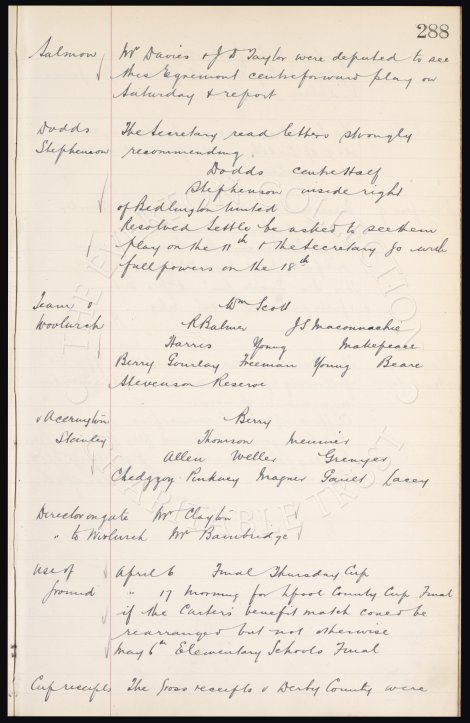 288
Salmon Mr Davies & J D Taylor were deputed to see
this Egremont centreforward play on
Saturday & report
Dodds The Secretary read letters strongly
Stephenson recommending
Dodds centre Half
Stephenson inside right
of Bedlington United
Resolved Settle be asked to see them
play on the 11th & the Secretary go with
full powers on the 18th
Team v Wm Scott
Woolwich R Balmer J S Maconnachie
Harris Young Makepeace
Berry Gourlay Freeman Young Beare
Stevenson Reserve
v Accrington Berry
Stanley Thomson Meunier
Allen Weller Grenyer
Chedgzoy Pinkney Magner Gault Lacey
Director on gate Mr Clayton
" to Woolwich Mr Bainbridge
Use of April 6 Final Thursday Cup
ground " 17 Morning for Lpool County Cup Final
if the Carters benefit match could be
rearranged but not otherwise
May 6th Elementary Schools Final
Cup receipts The gross receipts v Derby County were
THE EVERTON COLLECTION
CHARITABLE TRUST